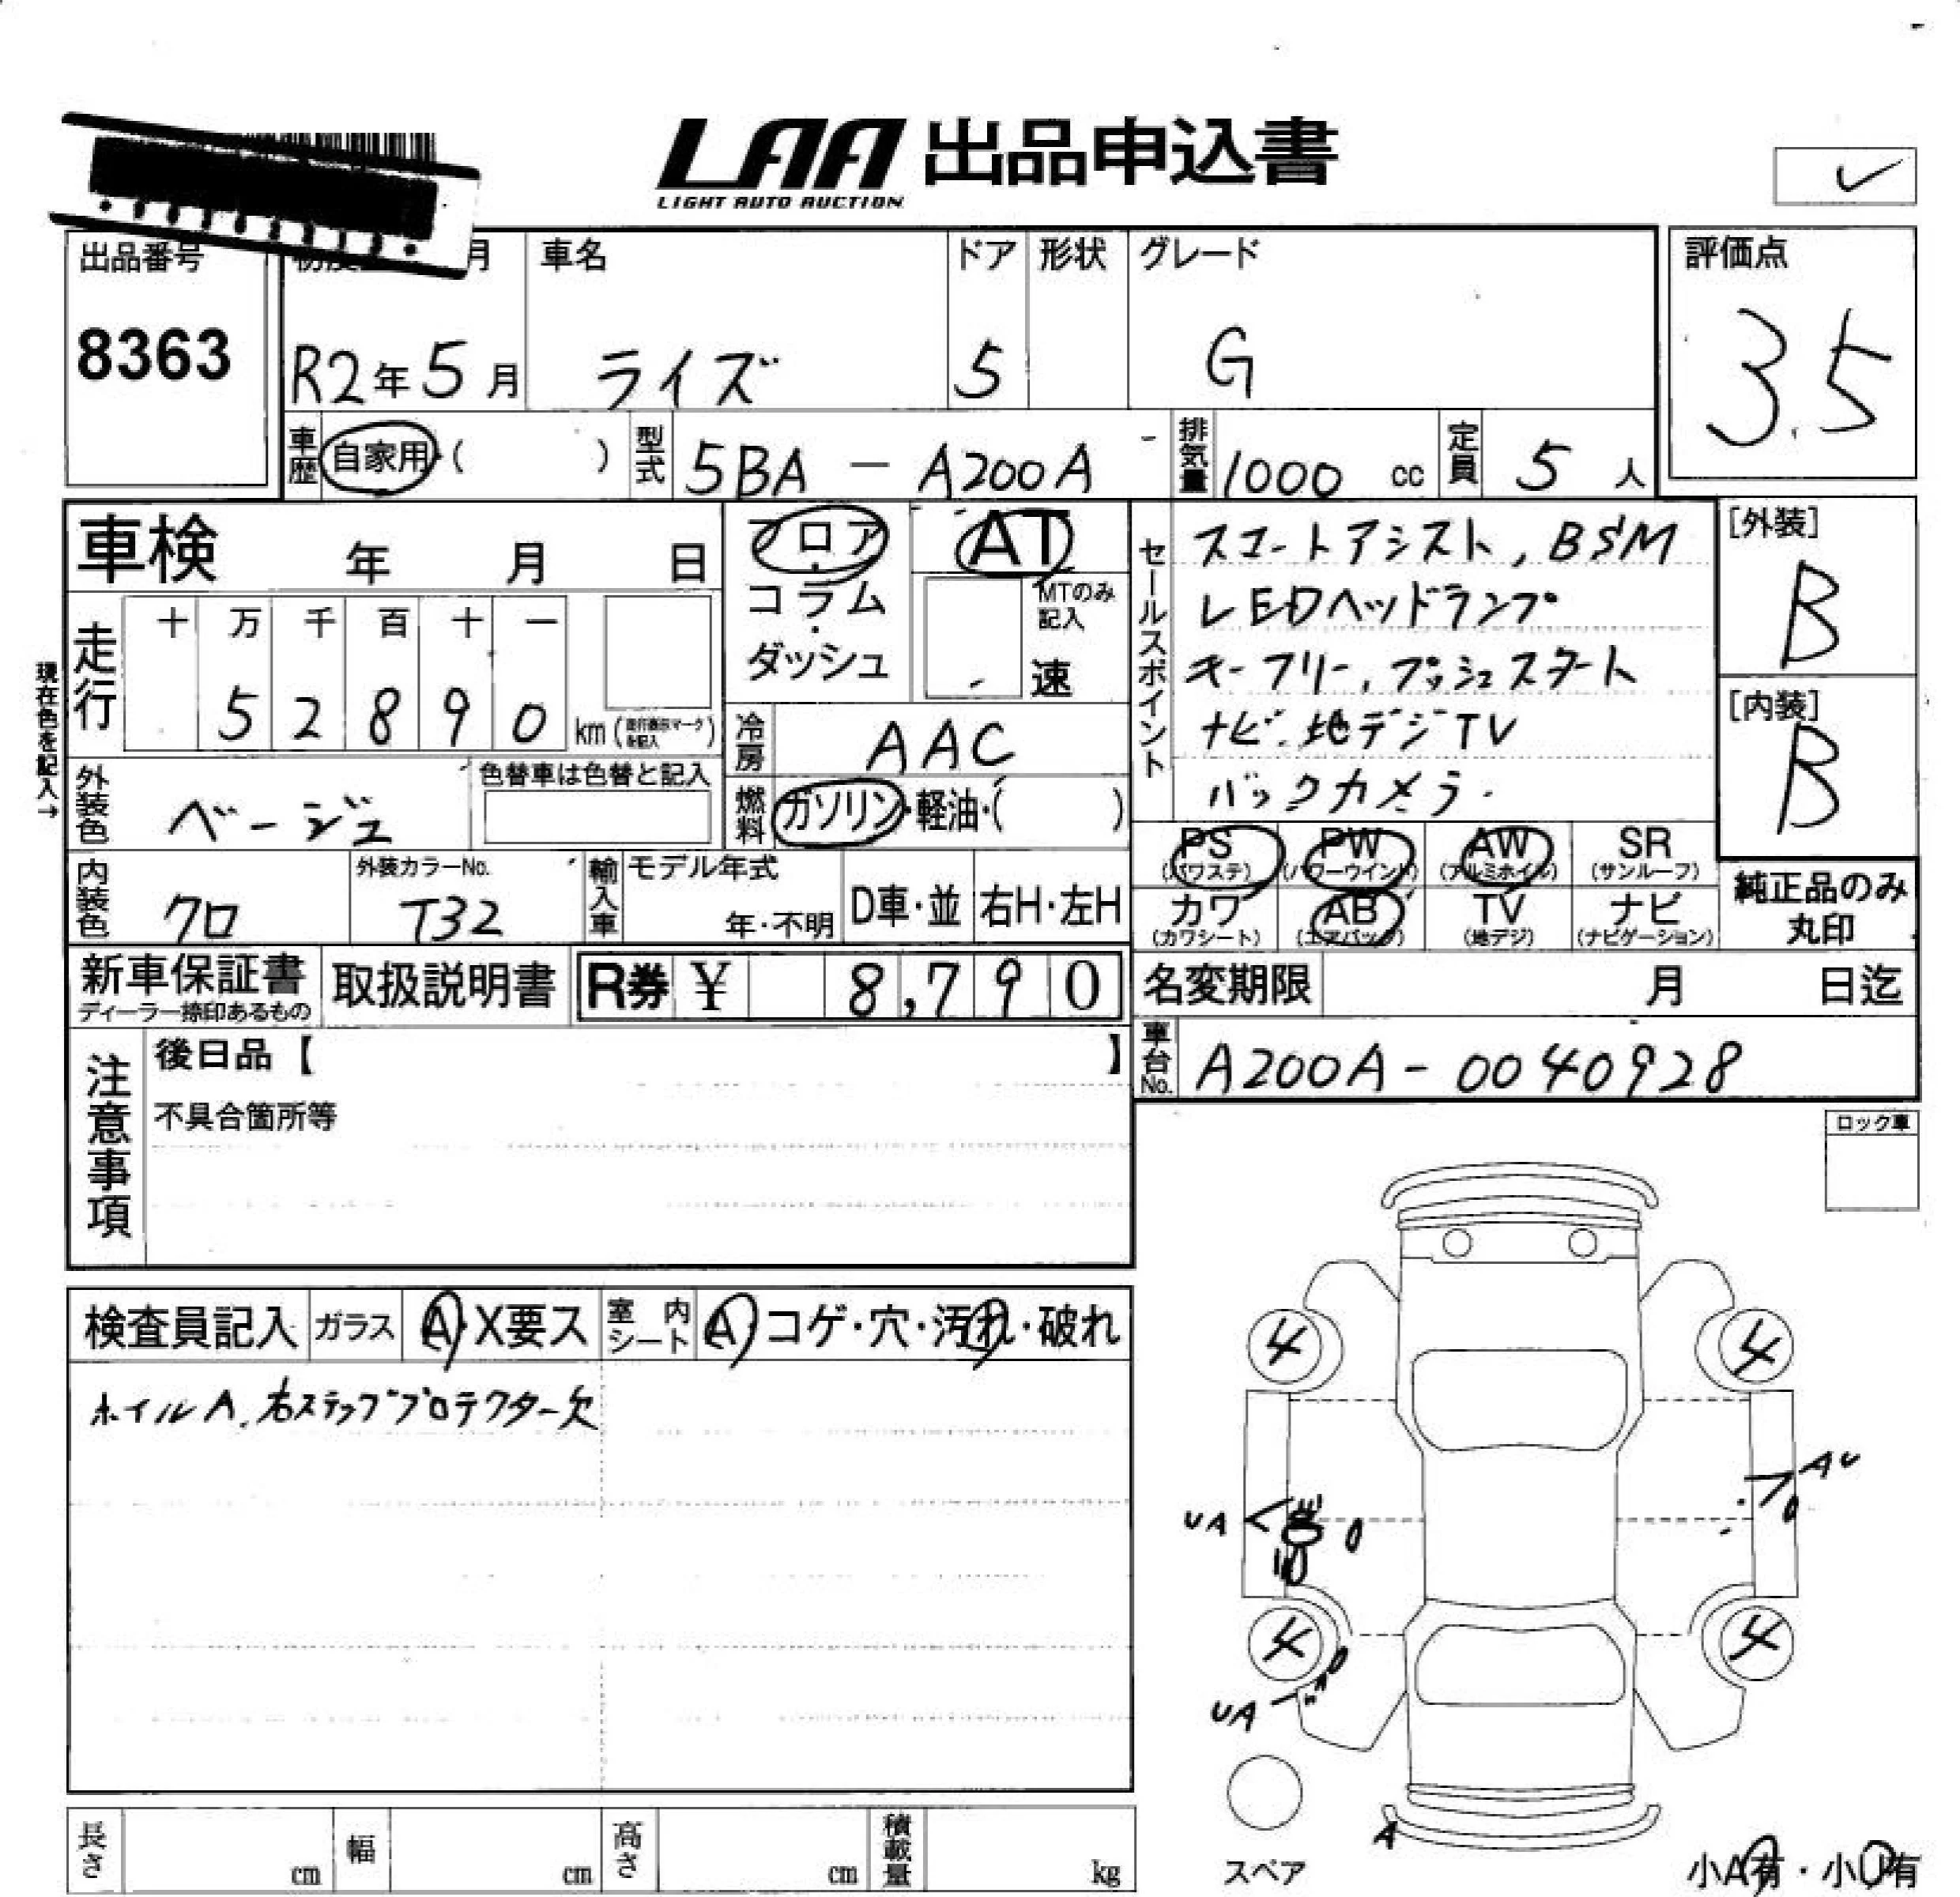 LAA 出品申込書
LIGHT AUTO AUCTION
出品番号
8363
月
R2年5月
車名
ライズ
ドア
5
形状
グレード
G
評価点
3.5
車歴 自家用・( )
型式 5BA - A200A
排気量 1000 cc
定員 5 人
車検 年 月 日
フロア・コラム・ダッシュ
AT
MTのみ記入
速
現在色を記入→
走行
十 万 千 百 十 一
5 2 8 9 0 km
冷房 AAC
燃料 ガソリン・軽油・( )
外装色 ベージュ
色替車は色替と記入
内装色 クロ
外装カラーNo. T32
輸入車
モデル年式
年・不明
D車・並
右H・左H
セールスポイント
スコートアシスト, BSM
LEDヘッドランプ
キーフリー, プッシュスタート
ナビ. 地デジTV
バックカメラ.
[外装]
B
[内装]
B
PS (パワステ)
PW (パワーウインド)
AW (アルミホイル)
SR (サンルーフ)
カワ (カワシート)
AB (エアバック)
TV (地デジ)
ナビ (ナビゲーション)
純正品のみ丸印
新車保証書
ディーラー捺印あるもの
取扱説明書
R券 ¥ 8,790
名変期限 月 日迄
車台No. A200A-0040928
注意事項
後日品【 】
不具合箇所等
ロック車
検査員記入
ガラス A・X要ス
室内シート A・コゲ・穴・汚れ・破れ
ホイルA. 右ステッププロテクター欠
4
4
AU
UA
4
4
UA
A
スペア
小A有・小U有
長さ cm
幅 cm
高さ cm
積載量 kg